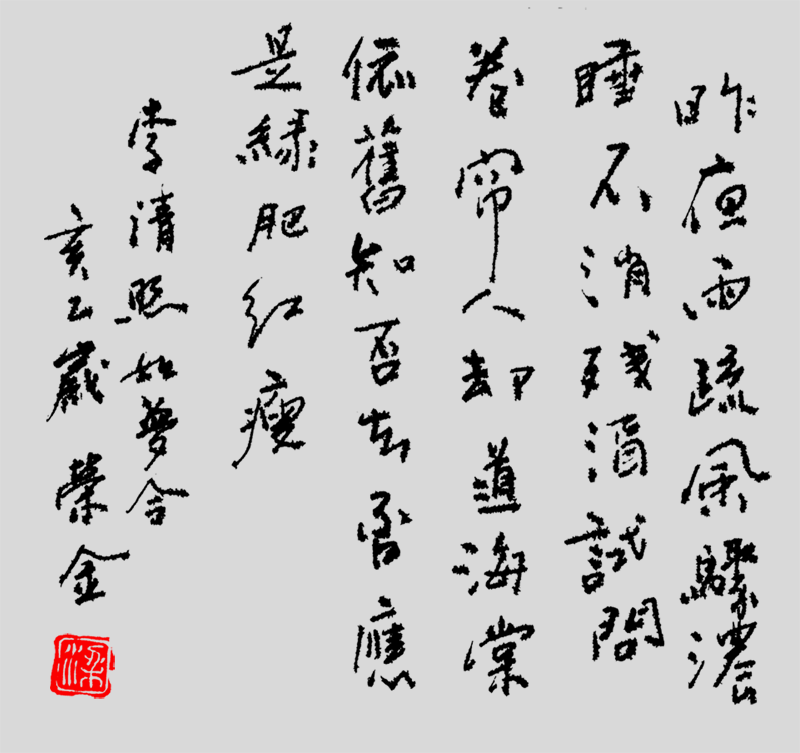 昨夜雨疏風驟濃
睡不消残酒試問
卷帘人却道海棠
依舊知否知否應
是綠肥红瘦
李清照如夢令
亥乙歲 榮金